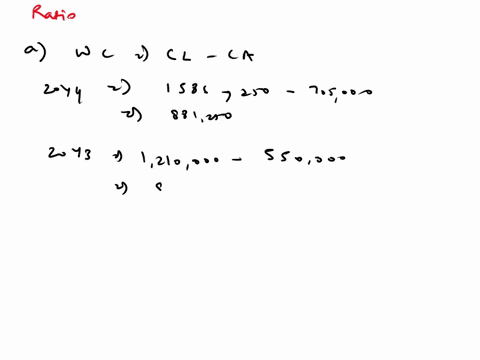 Ratio
a) WC => CL - CA
20Y4 => 1586,250 - 705,000
=> 881,250
20Y3 => 1,210,000 - 550,000
=>